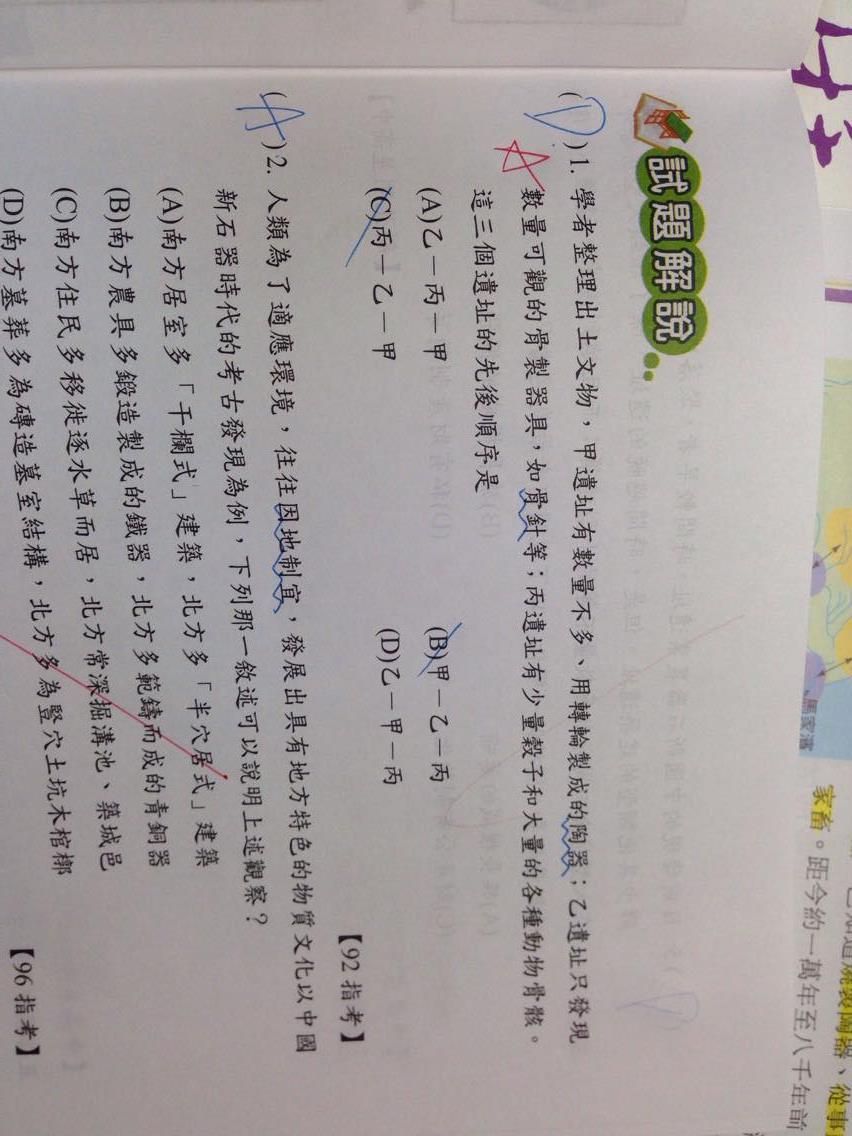 家畜。距今約一萬年至八千年前
馬家濱
試題解說
(D)1. 學者整理出土文物，甲遺址有數量不多、用轉輪製成的陶器；乙遺址只發現
數量可觀的骨製器具，如骨針等；丙遺址有少量穀子和大量的各種動物骨骸。
這三個遺址的先後順序是
(A)乙－丙－甲 (B)甲－乙－丙
(C)丙－乙－甲 (D)乙－甲－丙
【92 指考】
(A)2. 人類為了適應環境，往往因地制宜，發展出具有地方特色的物質文化以中國
新石器時代的考古發現為例，下列那一敘述可以說明上述觀察？
(A)南方居室多「干欄式」建築，北方多「半穴居式」建築
(B)南方農具多鍛造製成的鐵器，北方多範鑄而成的青銅器
(C)南方住民多移徙逐水草而居，北方常深掘溝池、築城邑
(D)南方墓葬多為磚造墓室結構，北方多為豎穴土坑木棺槨
【96 指考】